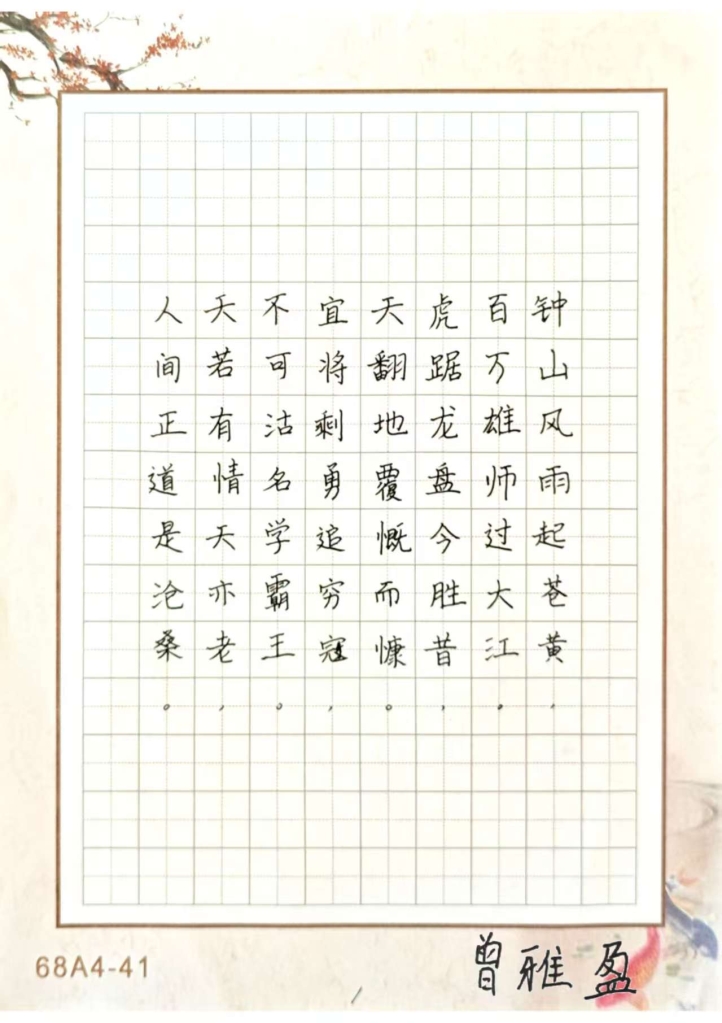 钟山风雨起苍黄，
百万雄师过大江。
虎踞龙盘今胜昔，
天翻地覆慨而慷。
宜将剩勇追穷寇，
不可沽名学霸王。
天若有情天亦老，
人间正道是沧桑。
68A4-41
曾雅盈